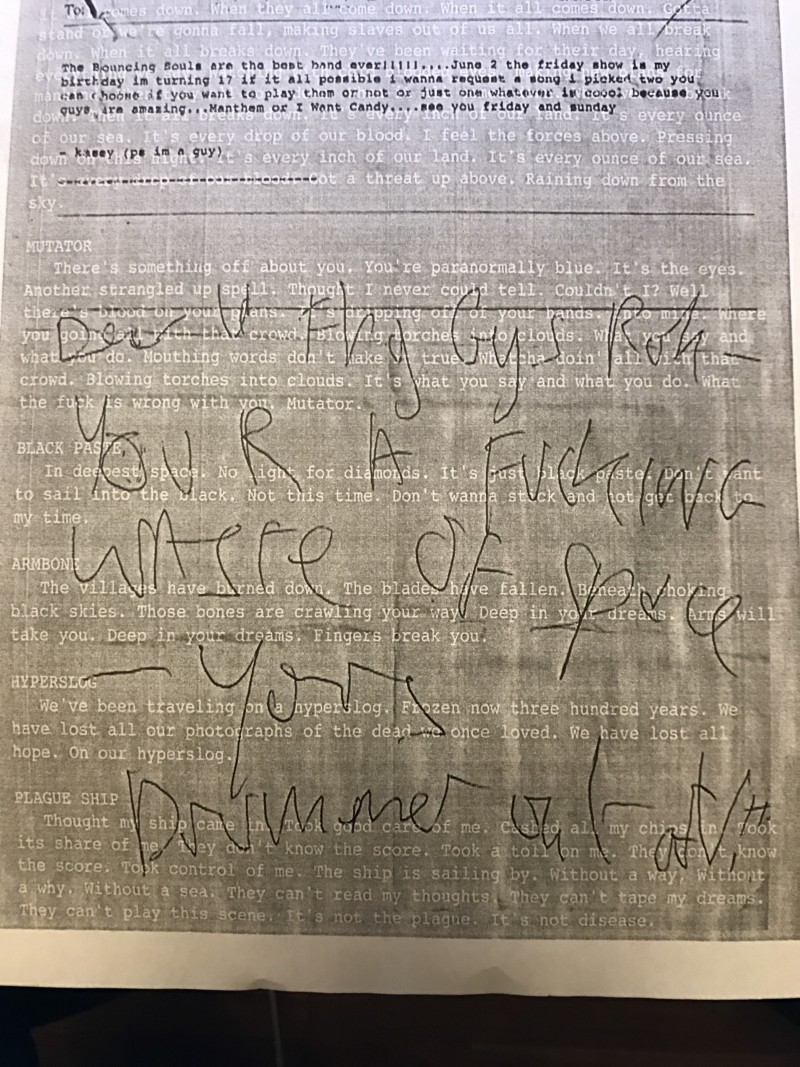 To:
comes down. When they all come down. When it all comes down. Gotta
stand or we're gonna fall, making slaves out of us all. When we all break
down. When it all breaks down. They've been waiting for their day, hearing
The Bouncing Souls are the best band ever!!!!!....June 2 the friday show is my
birthday im turning 17 if it all possible i wanna request a song i picked two you
can choose if you want to play them or not or just one whatever is coool because you
guys are amazing...Manthem or I Want Candy....see you friday and sunday
down. It's every inch of our land. It's every ounce
of our sea. It's every drop of our blood. I feel the forces above. Pressing
- kasey (ps im a guy)
down It's every inch of our land. It's every ounce of our sea.
It's every drop of our blood. Got a threat up above. Raining down from the
sky.
MUTATOR
There's something off about you. You're paranormally blue. It's the eyes.
Another strangled up spell. Thought I never could tell. Couldn't I? Well
there's blood on your plans. It's dropping off of your hands. Into mine. Where
you going with that crowd. Blowing torches into clouds. What you say and
what you do. Mouthing words don't make it true. Whatcha doin' all with that
crowd. Blowing torches into clouds. It's what you say and what you do. What
the fuck is wrong with you. Mutator.
YOU R A FUCKING
BLACK PASTE
In deepest space. No light for diamonds. It's just black paste. Don't want
to sail into the black. Not this time. Don't wanna stuck and not get back to
my time.
WASTE OF Space
ARMBONE
The villages have burned down. The blades have fallen. Beneath choking
black skies. Those bones are crawling your way. Deep in your dreams. Arms will
take you. Deep in your dreams. Fingers break you.
HYPERSLOG
We've been traveling on a hyperslog. Frozen now three hundred years. We
have lost all our photographs of the dead we once loved. We have lost all
hope. On our hyperslog.
PLAGUE SHIP
Thought my ship came in. Took good care of me. Cashed all my chips in. Took
its share of me. They don't know the score. Took a toll on me. They don't know
the score. Took control of me. The ship is sailing by. Without a way. Without
a why. Without a sea. They can't read my thoughts. They can't tape my dreams.
They can't play this scene. It's not the plague. It's not disease.